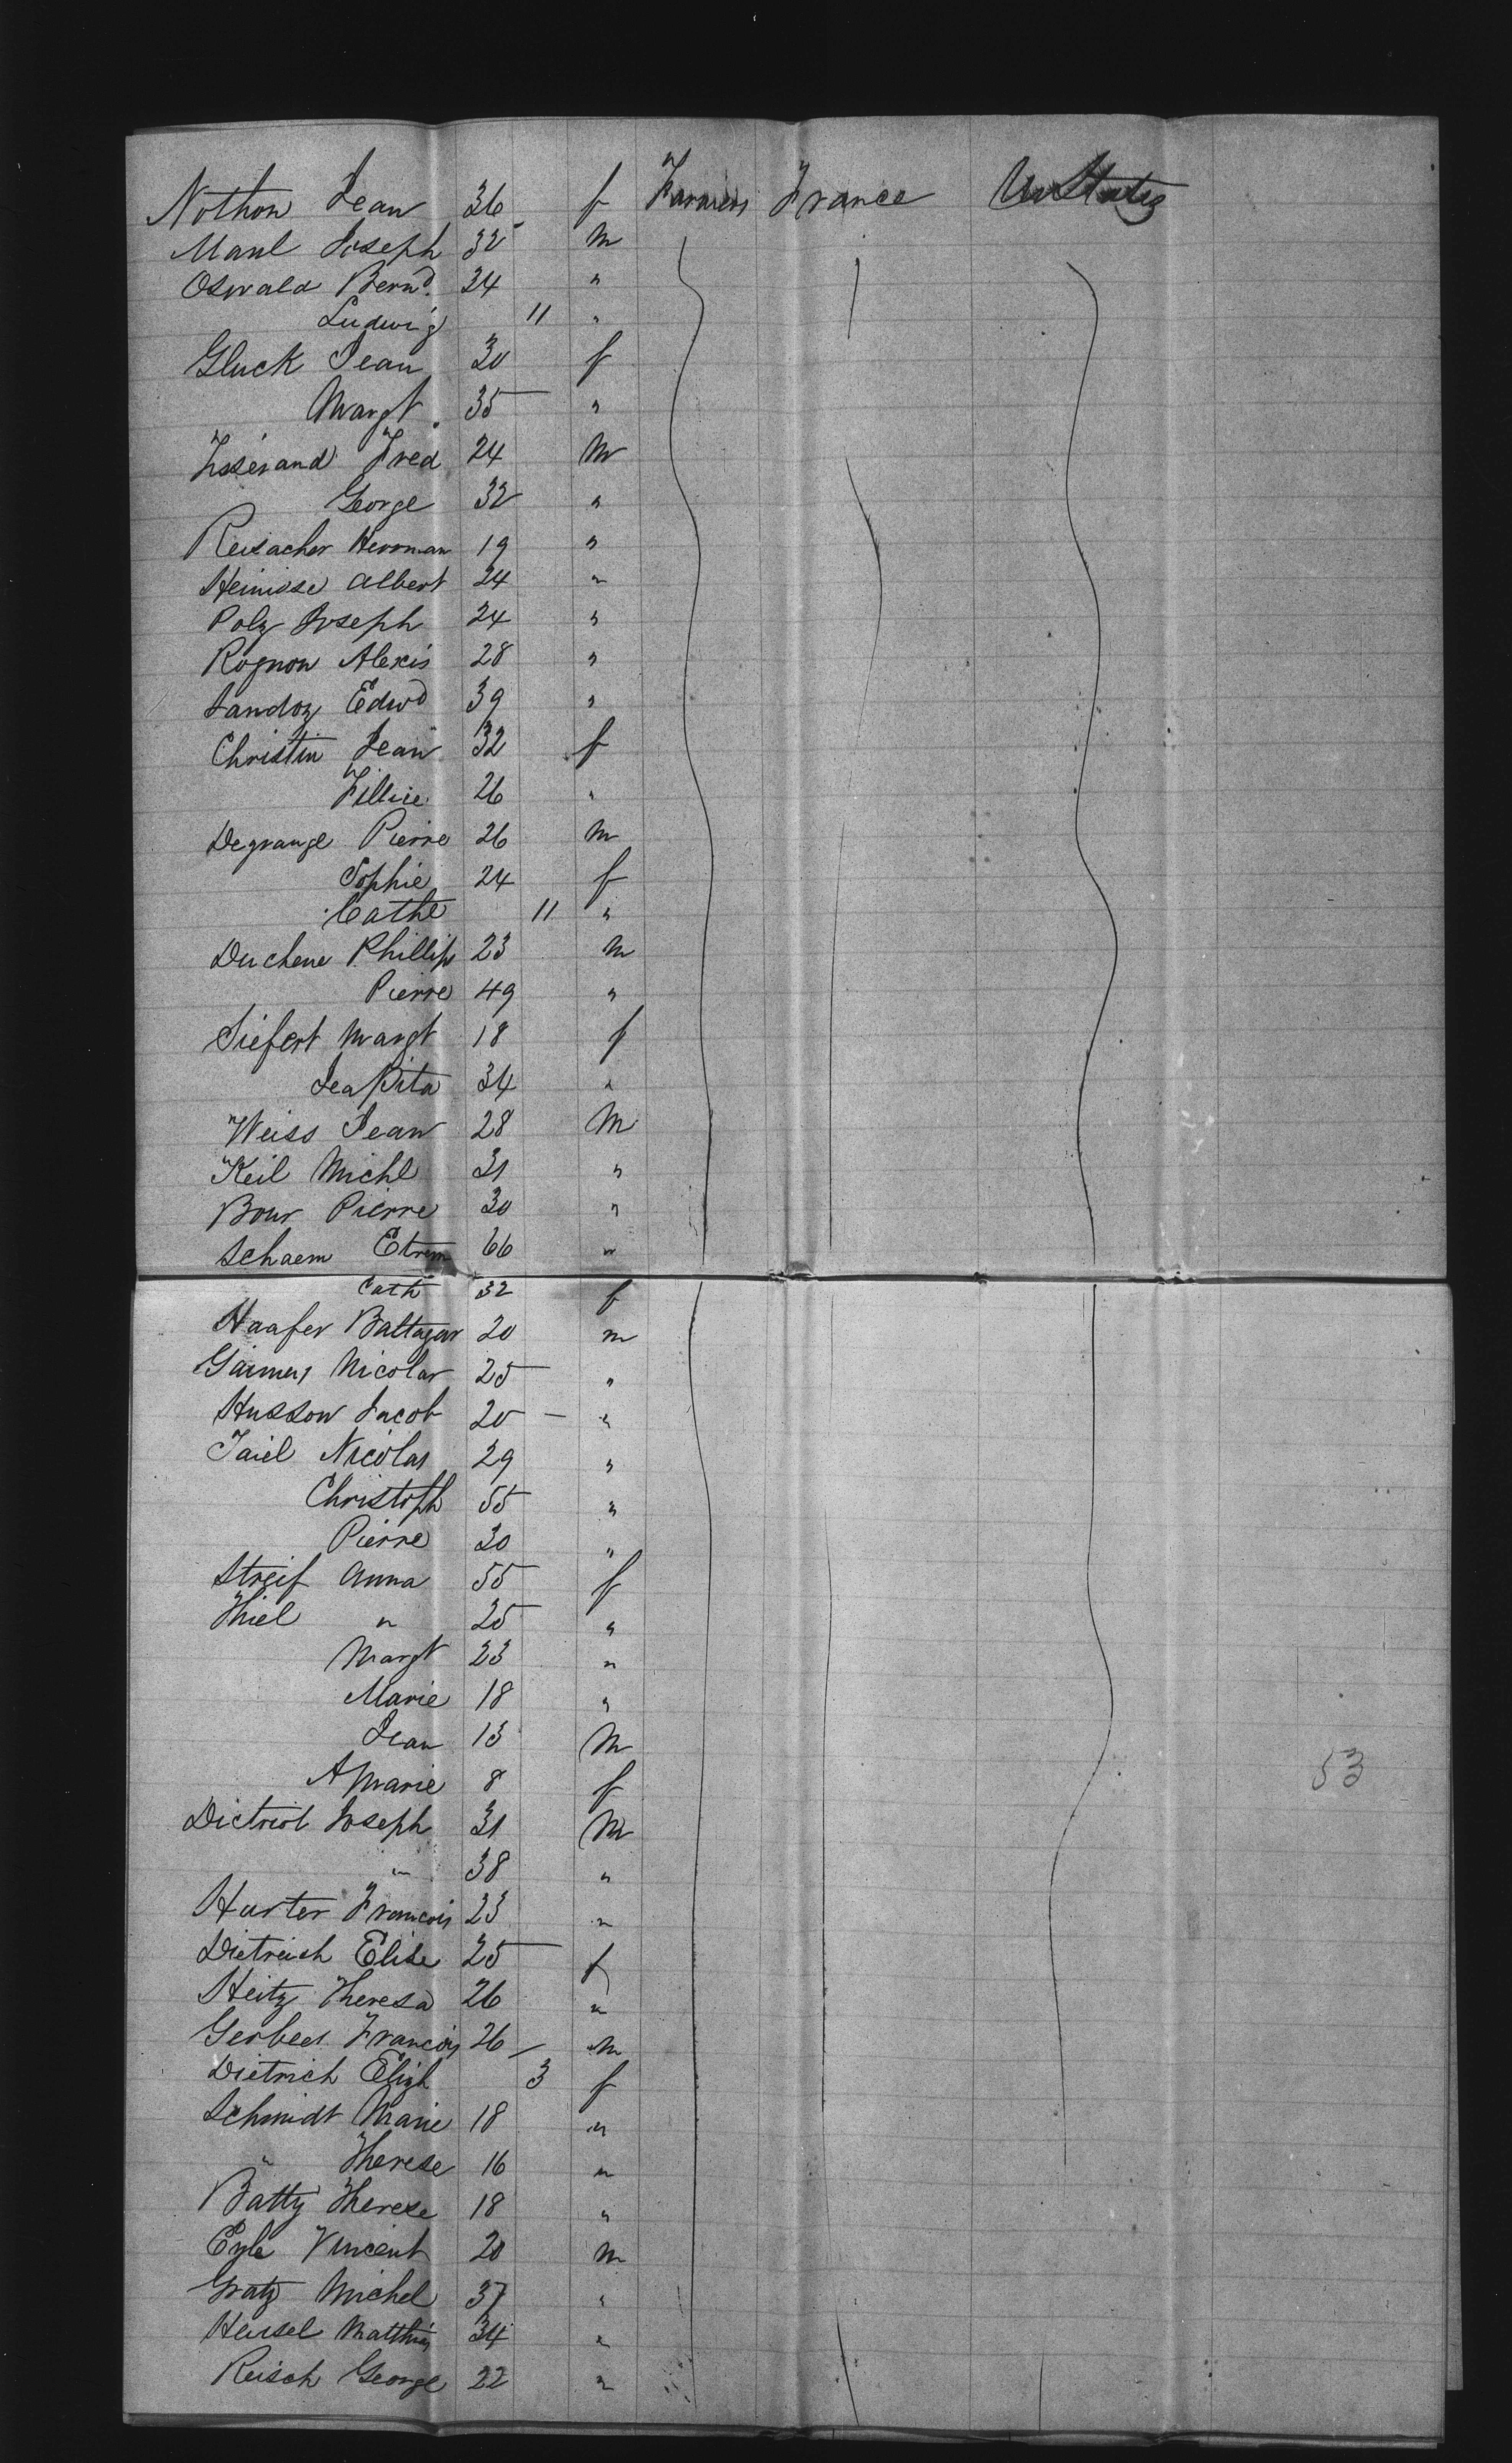 Nothon Jean 36 f Farmers France Un States
Manl Joseph 32 m
Oswald Bernd. 24 "
Ludwig 11 "
Gluck Jean 30 f
Margt. 35 "
Fred 24 M
George 32 "
Reisacher Herrman 19 "
Albert 24 "
Poly Joseph 24 "
Rognon Alexis 28 "
Sandoz Edwd 39 "
Christin Jean 32 f
26 "
Degrange Pierre 26 m
Sophie 24 f
Cathe 11 "
Duchene Phillip 23 m
Pierre 49 "
Siefert Margt 18 f
34 "
Weiss Jean 28 M
Keil Michl 31 "
Bour Pierre 30 "
Schaem 66 "
Cath 32 f
Haafer Baltazar 20 m
Nicolas 25 "
Husson Jacob 20 "
Nicolas 29 "
Christoph 55 "
Pierre 30 "
Streif Anna 55 f
Thiel " 25 "
Margt 23 "
Marie 18 "
Jean 13 M
A Marie 8 f 53
Joseph 31 M
" 38 "
Harter Francois 23 "
Dietreich Elise 25 f
Heitz Theresa 26 "
Francois 26 m
Dietrich Elizh 3 f
Schmidt Marie 18 "
" Therese 16 "
Batty Therese 18 "
Vincent 20 m
Gratz Michel 37 "
Matthias 34 "
Reisch George 22 "